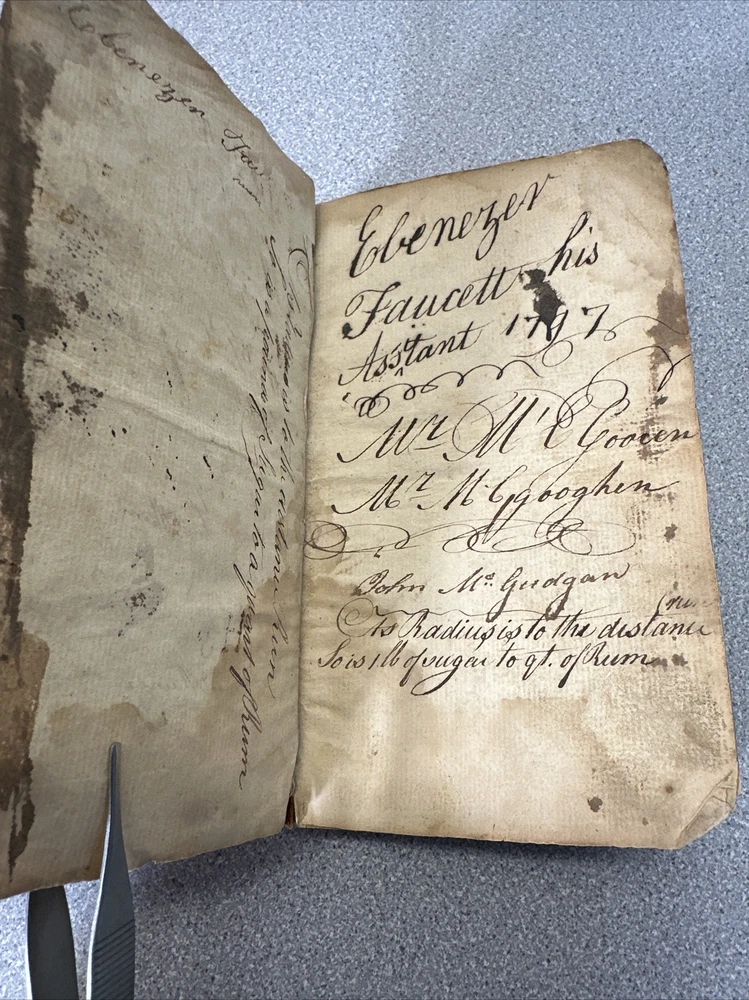 Ebenezer Fau
As Radius is to the distance run
So is a pound of Sugar to a quart of Rum
Ebenezer
Faucett his
Assistant 1797
Mr. Mc Gooven
Mr. Mc Ggooghen
John Mc. Gudgan
(run
As Radius is to the distance
So is 1 lb of sugar to qt. of Rum